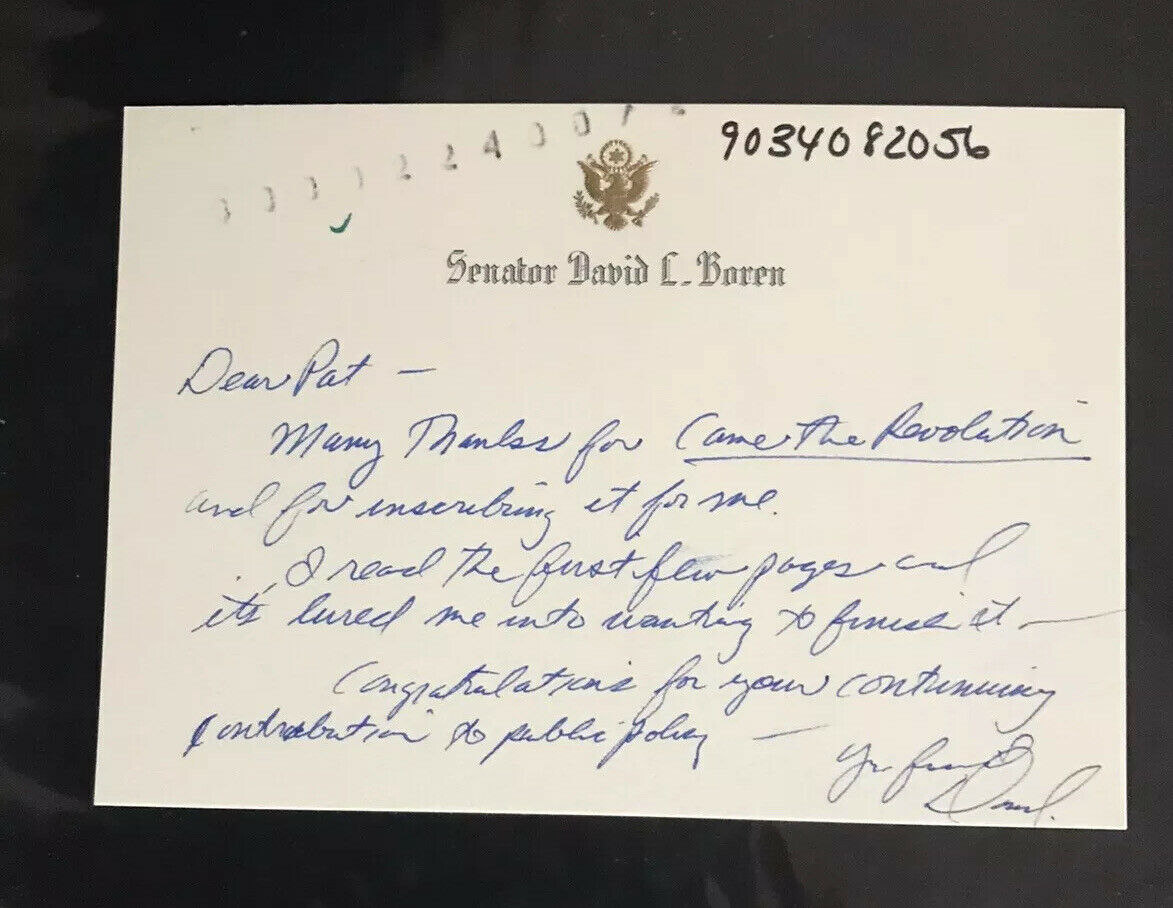 2 2 4 0 0 7
9034082056
Senator David L. Boren
Dear Pat —
Many Thanks for Came the Revolution
and for inscribing it for me.
I read the first few pages and
it's lured me into wanting to finish it —
Congratulations for your continuing
contribution to public policy —
Yr friend
David.